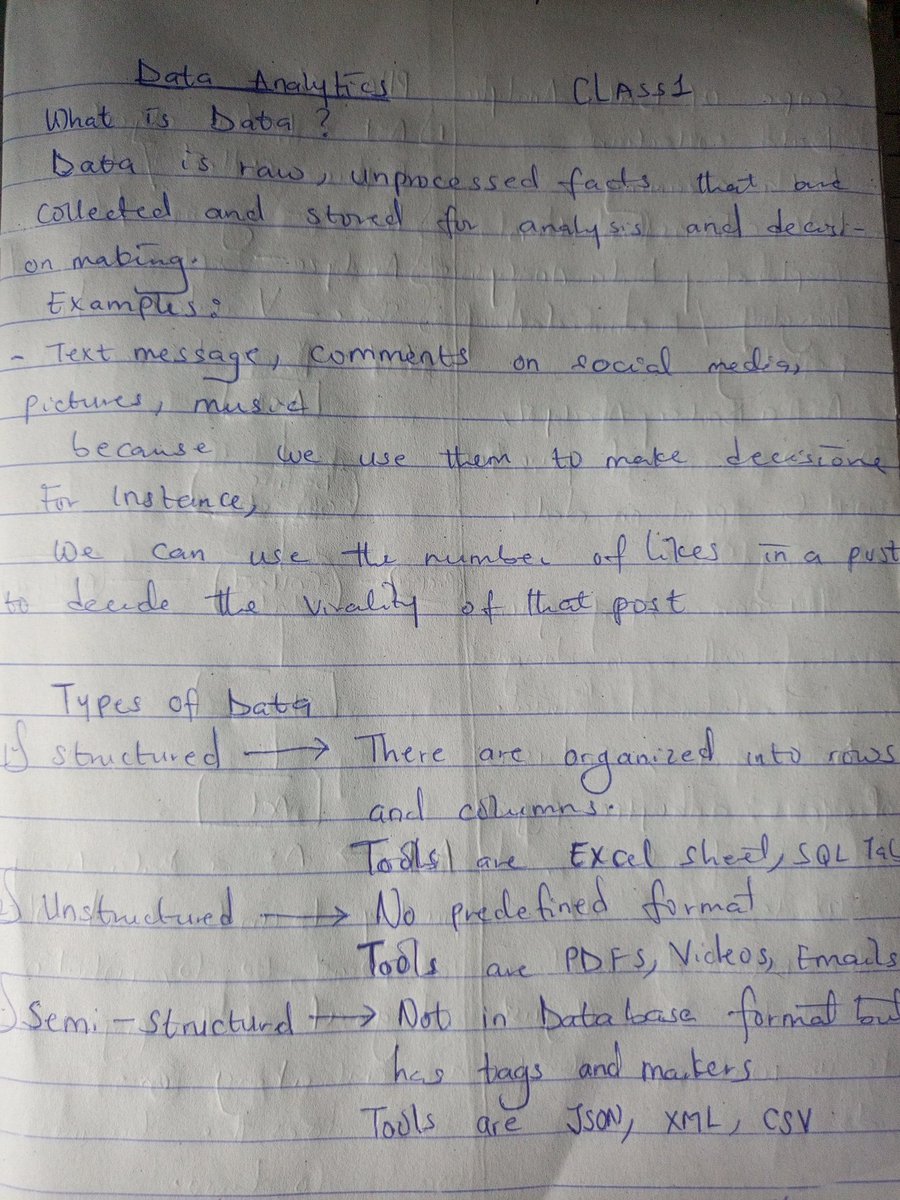 Data Analytics CLASS1
What is Data ?
Data is raw, unprocessed facts that are
collected and stored for analysis and decisi-
on making.
Examples:
- Text message, comments on social media,
pictures, music
because we use them to make decisions
For Instance,
We can use the number of likes in a post
to decide the virality of that post
Types of Data
1) Structured → There are organized into rows
and columns.
Tools are Excel sheet, SQL
2) Unstructured → No predefined format
Tools are PDFS, Videos, Emails
Semi-Structurd → Not in Database format but
has tags and markers
Tools are JSON, XML, CSV